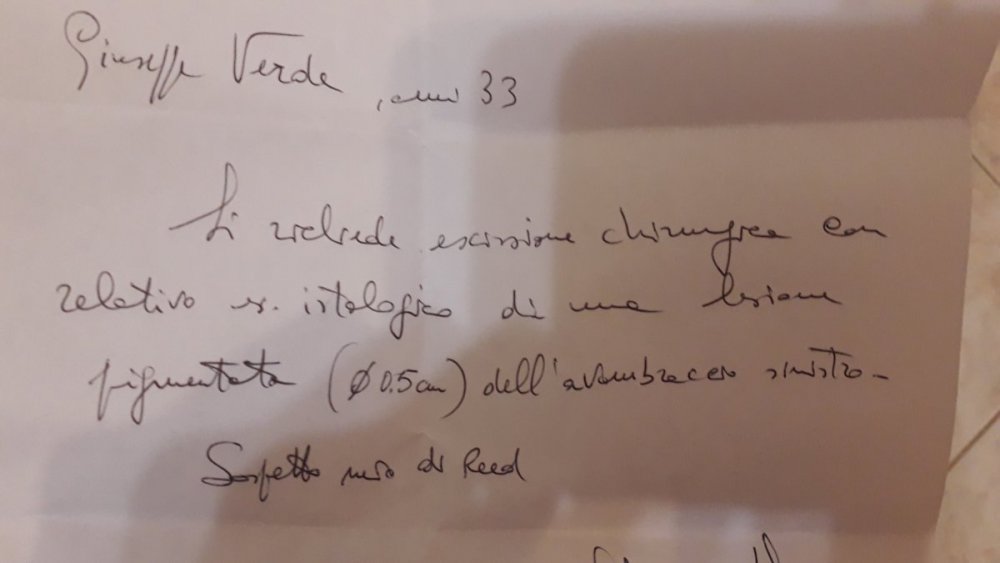 Giuseppe Verde, anni 33
Si richiede escissione chirurgica con
relativo es. istologico di una lesione
pigmentata (Ø 0.5 cm) dell'avambraccio sinistro-
Sospetto nevo di Reed